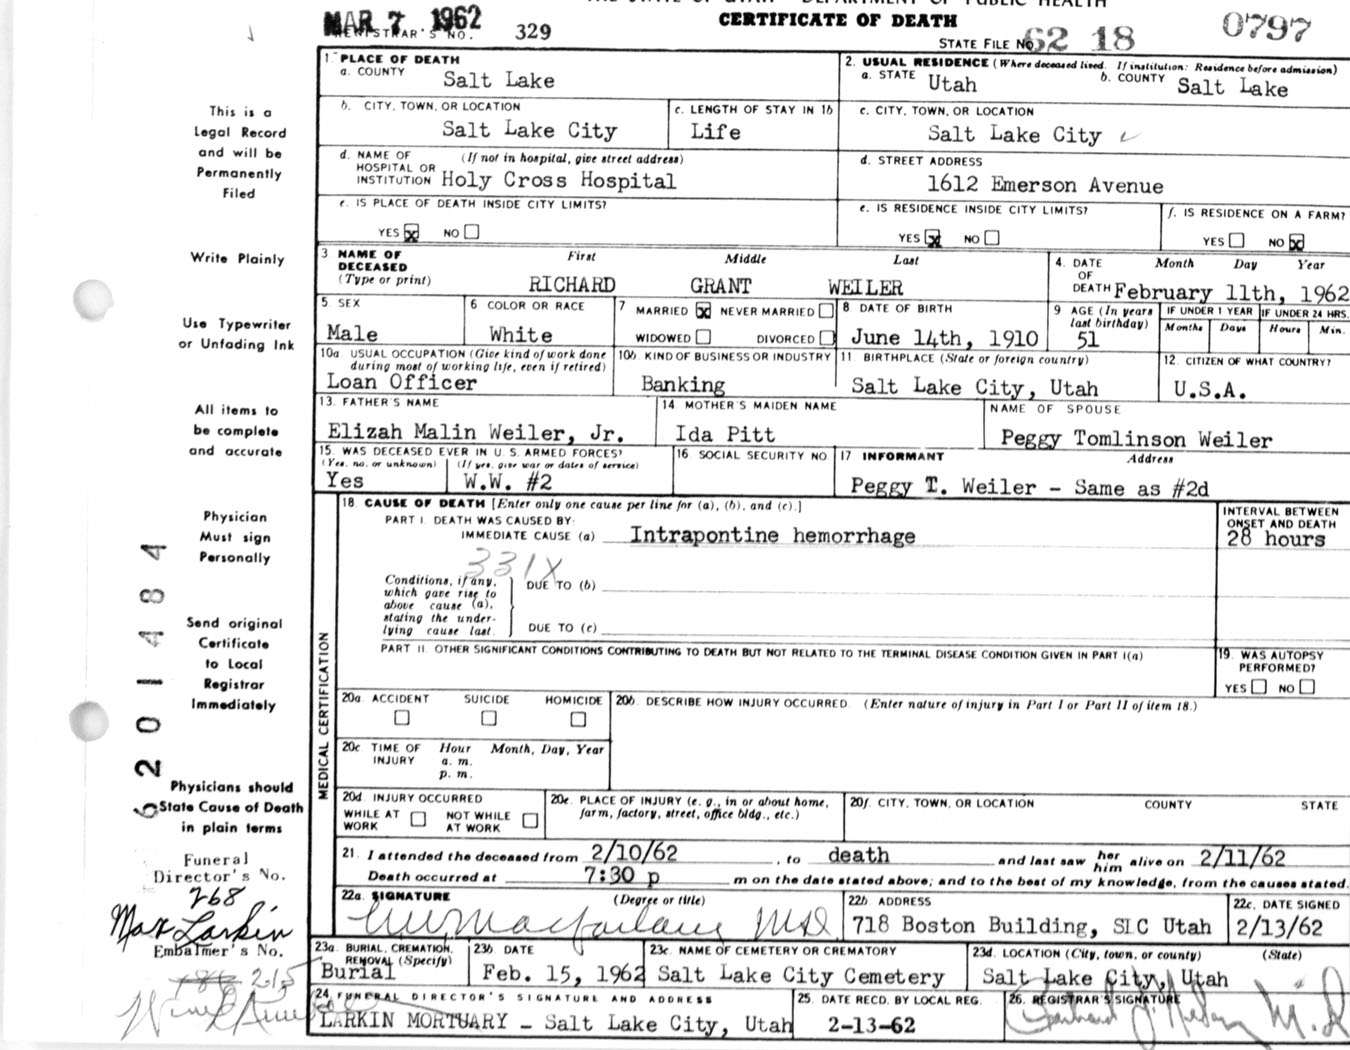 CERTIFICATE OF DEATH
MAR 7 1962
REGISTRAR'S NO. 329
STATE FILE NO. 62 18 0797
This is a
Legal Record
and will be
Permanently
Filed
Write Plainly
Use Typewriter
or Unfading Ink
All items to
be complete
and accurate
Physician
Must sign
Personally
Send original
Certificate
to Local
Registrar
Immediately
Physicians should
State Cause of Death
in plain terms
Funeral
Director's No.
268
Max Larkin
Embalmer's No.
215
6201484
1. PLACE OF DEATH
a. COUNTY Salt Lake
2. USUAL RESIDENCE (Where deceased lived. If institution: Residence before admission)
a. STATE Utah b. COUNTY Salt Lake
b. CITY, TOWN, OR LOCATION Salt Lake City
c. LENGTH OF STAY IN 1b Life
c. CITY, TOWN, OR LOCATION Salt Lake City
d. NAME OF HOSPITAL OR INSTITUTION (If not in hospital, give street address) Holy Cross Hospital
d. STREET ADDRESS 1612 Emerson Avenue
e. IS PLACE OF DEATH INSIDE CITY LIMITS?
YES x NO
e. IS RESIDENCE INSIDE CITY LIMITS?
YES x NO
f. IS RESIDENCE ON A FARM?
YES NO x
3 NAME OF DECEASED (Type or print) First Middle Last
RICHARD GRANT WEILER
4. DATE OF DEATH Month Day Year
February 11th, 1962
5. SEX Male
6 COLOR OR RACE White
7 MARRIED x NEVER MARRIED
WIDOWED DIVORCED
8 DATE OF BIRTH June 14th, 1910
9 AGE (In years last birthday) 51
IF UNDER 1 YEAR Months Days
IF UNDER 24 HRS. Hours Min.
10a USUAL OCCUPATION (Give kind of work done during most of working life, even if retired) Loan Officer
10b. KIND OF BUSINESS OR INDUSTRY Banking
11. BIRTHPLACE (State or foreign country) Salt Lake City, Utah
12. CITIZEN OF WHAT COUNTRY? U.S.A.
13. FATHER'S NAME Elizah Malin Weiler, Jr.
14 MOTHER'S MAIDEN NAME Ida Pitt
NAME OF SPOUSE Peggy Tomlinson Weiler
15. WAS DECEASED EVER IN U.S. ARMED FORCES?
(Yes, no, or unknown) (If yes, give war or dates of service)
Yes W.W. #2
16 SOCIAL SECURITY NO.
17 INFORMANT Address
Peggy T. Weiler - Same as #2d
MEDICAL CERTIFICATION
18. CAUSE OF DEATH [Enter only one cause per line for (a), (b), and (c).]
PART I. DEATH WAS CAUSED BY:
IMMEDIATE CAUSE (a) Intrapontine hemorrhage
INTERVAL BETWEEN ONSET AND DEATH
28 hours
331X
Conditions, if any, which gave rise to above cause (a), stating the underlying cause last.
DUE TO (b)
DUE TO (c)
PART II. OTHER SIGNIFICANT CONDITIONS CONTRIBUTING TO DEATH BUT NOT RELATED TO THE TERMINAL DISEASE CONDITION GIVEN IN PART I(a)
19. WAS AUTOPSY PERFORMED?
YES NO
20a. ACCIDENT SUICIDE HOMICIDE
20b. DESCRIBE HOW INJURY OCCURRED. (Enter nature of injury in Part I or Part II of item 18.)
20c TIME OF INJURY Hour a. m. p. m. Month, Day, Year
20d. INJURY OCCURRED
WHILE AT WORK NOT WHILE AT WORK
20e. PLACE OF INJURY (e. g., in or about home, farm, factory, street, office bldg., etc.)
20f. CITY, TOWN, OR LOCATION COUNTY STATE
21. I attended the deceased from 2/10/62, to death and last saw her him alive on 2/11/62
Death occurred at 7:30 p m on the date stated above; and to the best of my knowledge, from the causes stated.
22a. SIGNATURE (Degree or title)
Macfarlane MD
22b. ADDRESS 718 Boston Building, SLC Utah
22c. DATE SIGNED 2/13/62
23a. BURIAL, CREMATION, REMOVAL (Specify) Burial
23b DATE Feb. 15, 1962
23c. NAME OF CEMETERY OR CREMATORY Salt Lake City Cemetery
23d. LOCATION (City, town, or county) (State)
Salt Lake City, Utah
24. FUNERAL DIRECTOR'S SIGNATURE AND ADDRESS
LARKIN MORTUARY - Salt Lake City, Utah
25. DATE RECD. BY LOCAL REG. 2-13-62
26. REGISTRAR'S SIGNATURE
M.D